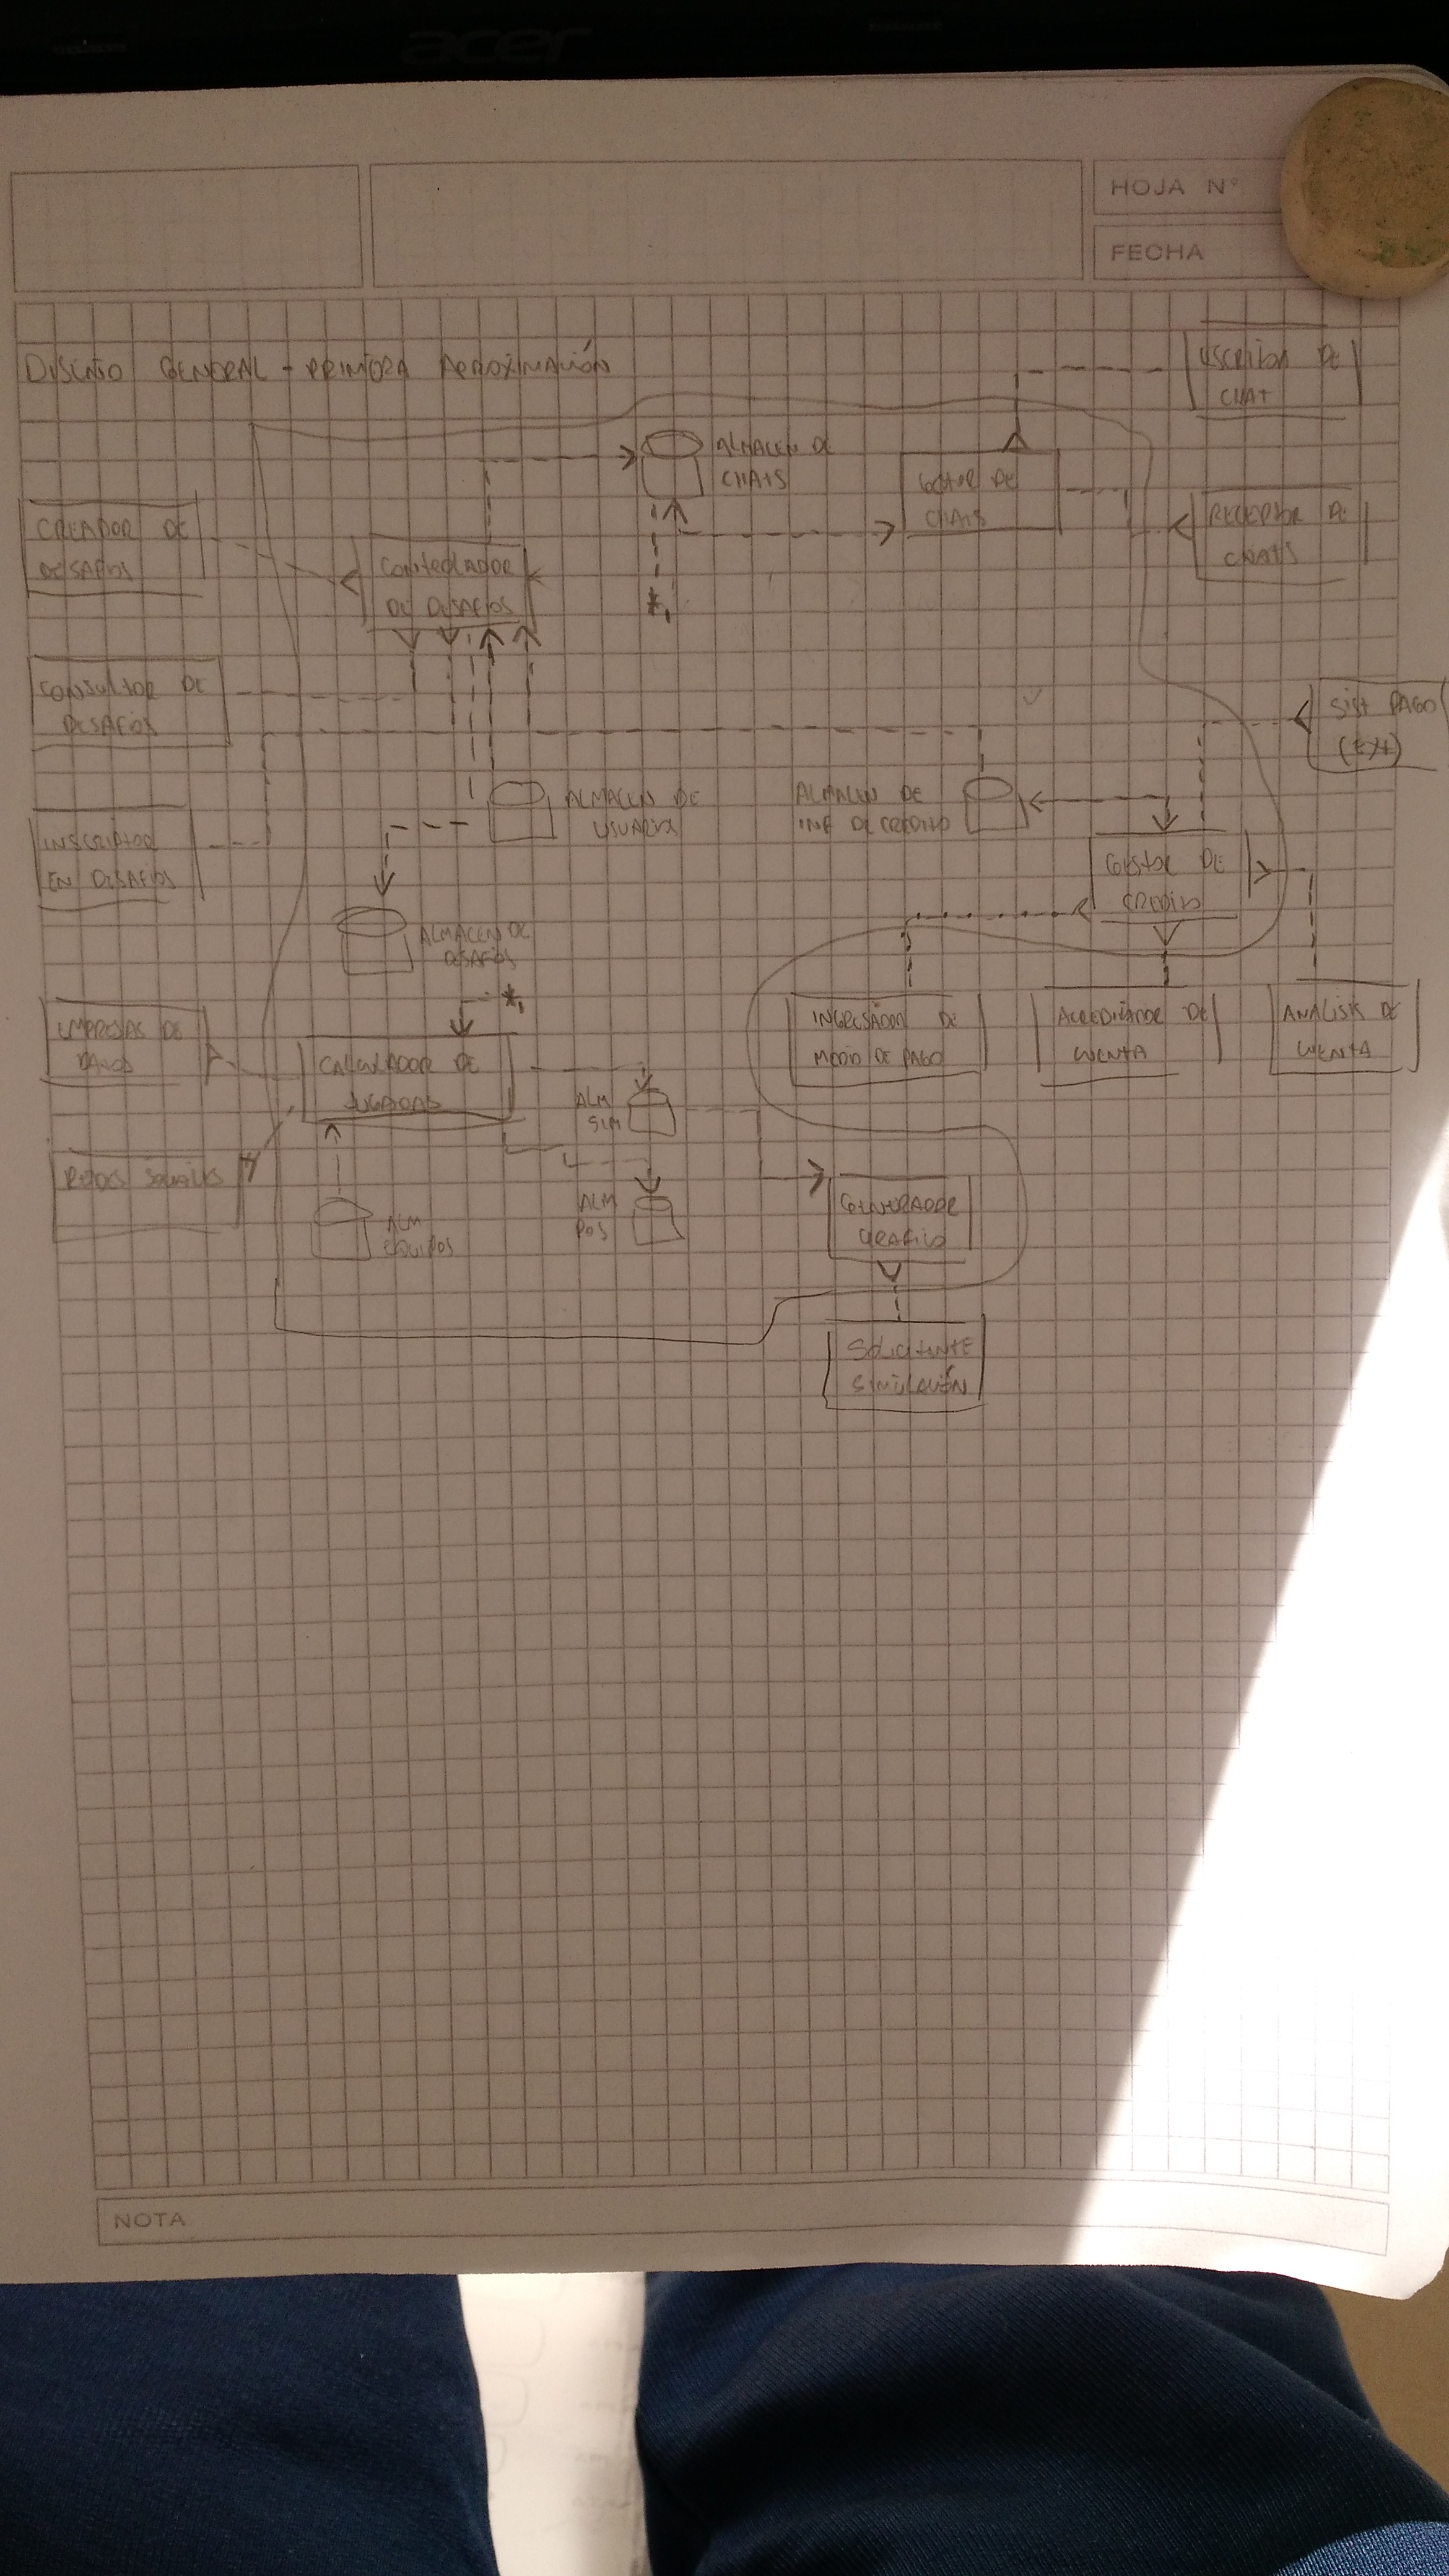 acer
HOJA N°
FECHA
DISEÑO GENERAL - PRIMERA APROXIMACIÓN
ESCRITOR DE
CHAT
ALMACEN DE
CHATS
GESTOR DE
CHATS
RECEPTOR DE
CHATS
CREADOR DE
DESAFIOS
CONTROLADOR
DE DESAFIOS
*1
CONSULTOR DE
DESAFIOS
SIST PAGO
(EXT)
ALMACEN DE
USUARIOS
ALMACEN DE
INF DE CREDITO
INSCRIPTOR
EN DESAFIOS
GESTOR DE
CREDITO
ALMACEN DE
DESAFIOS
*1
EMPRESAS DE
DATOS
CALCULADOR DE
JUGADAS
ALM
SIM
INGRESADOR DE
MEDIO DE PAGO
ACREDITADOR DE
CUENTA
ANALISIS DE
CUENTA
REDES SOCIALES
ALM
EQUIPOS
ALM
POS
GENERADOR
GRAFICO
SOLICITANTE
SIMULACIÓN
NOTA